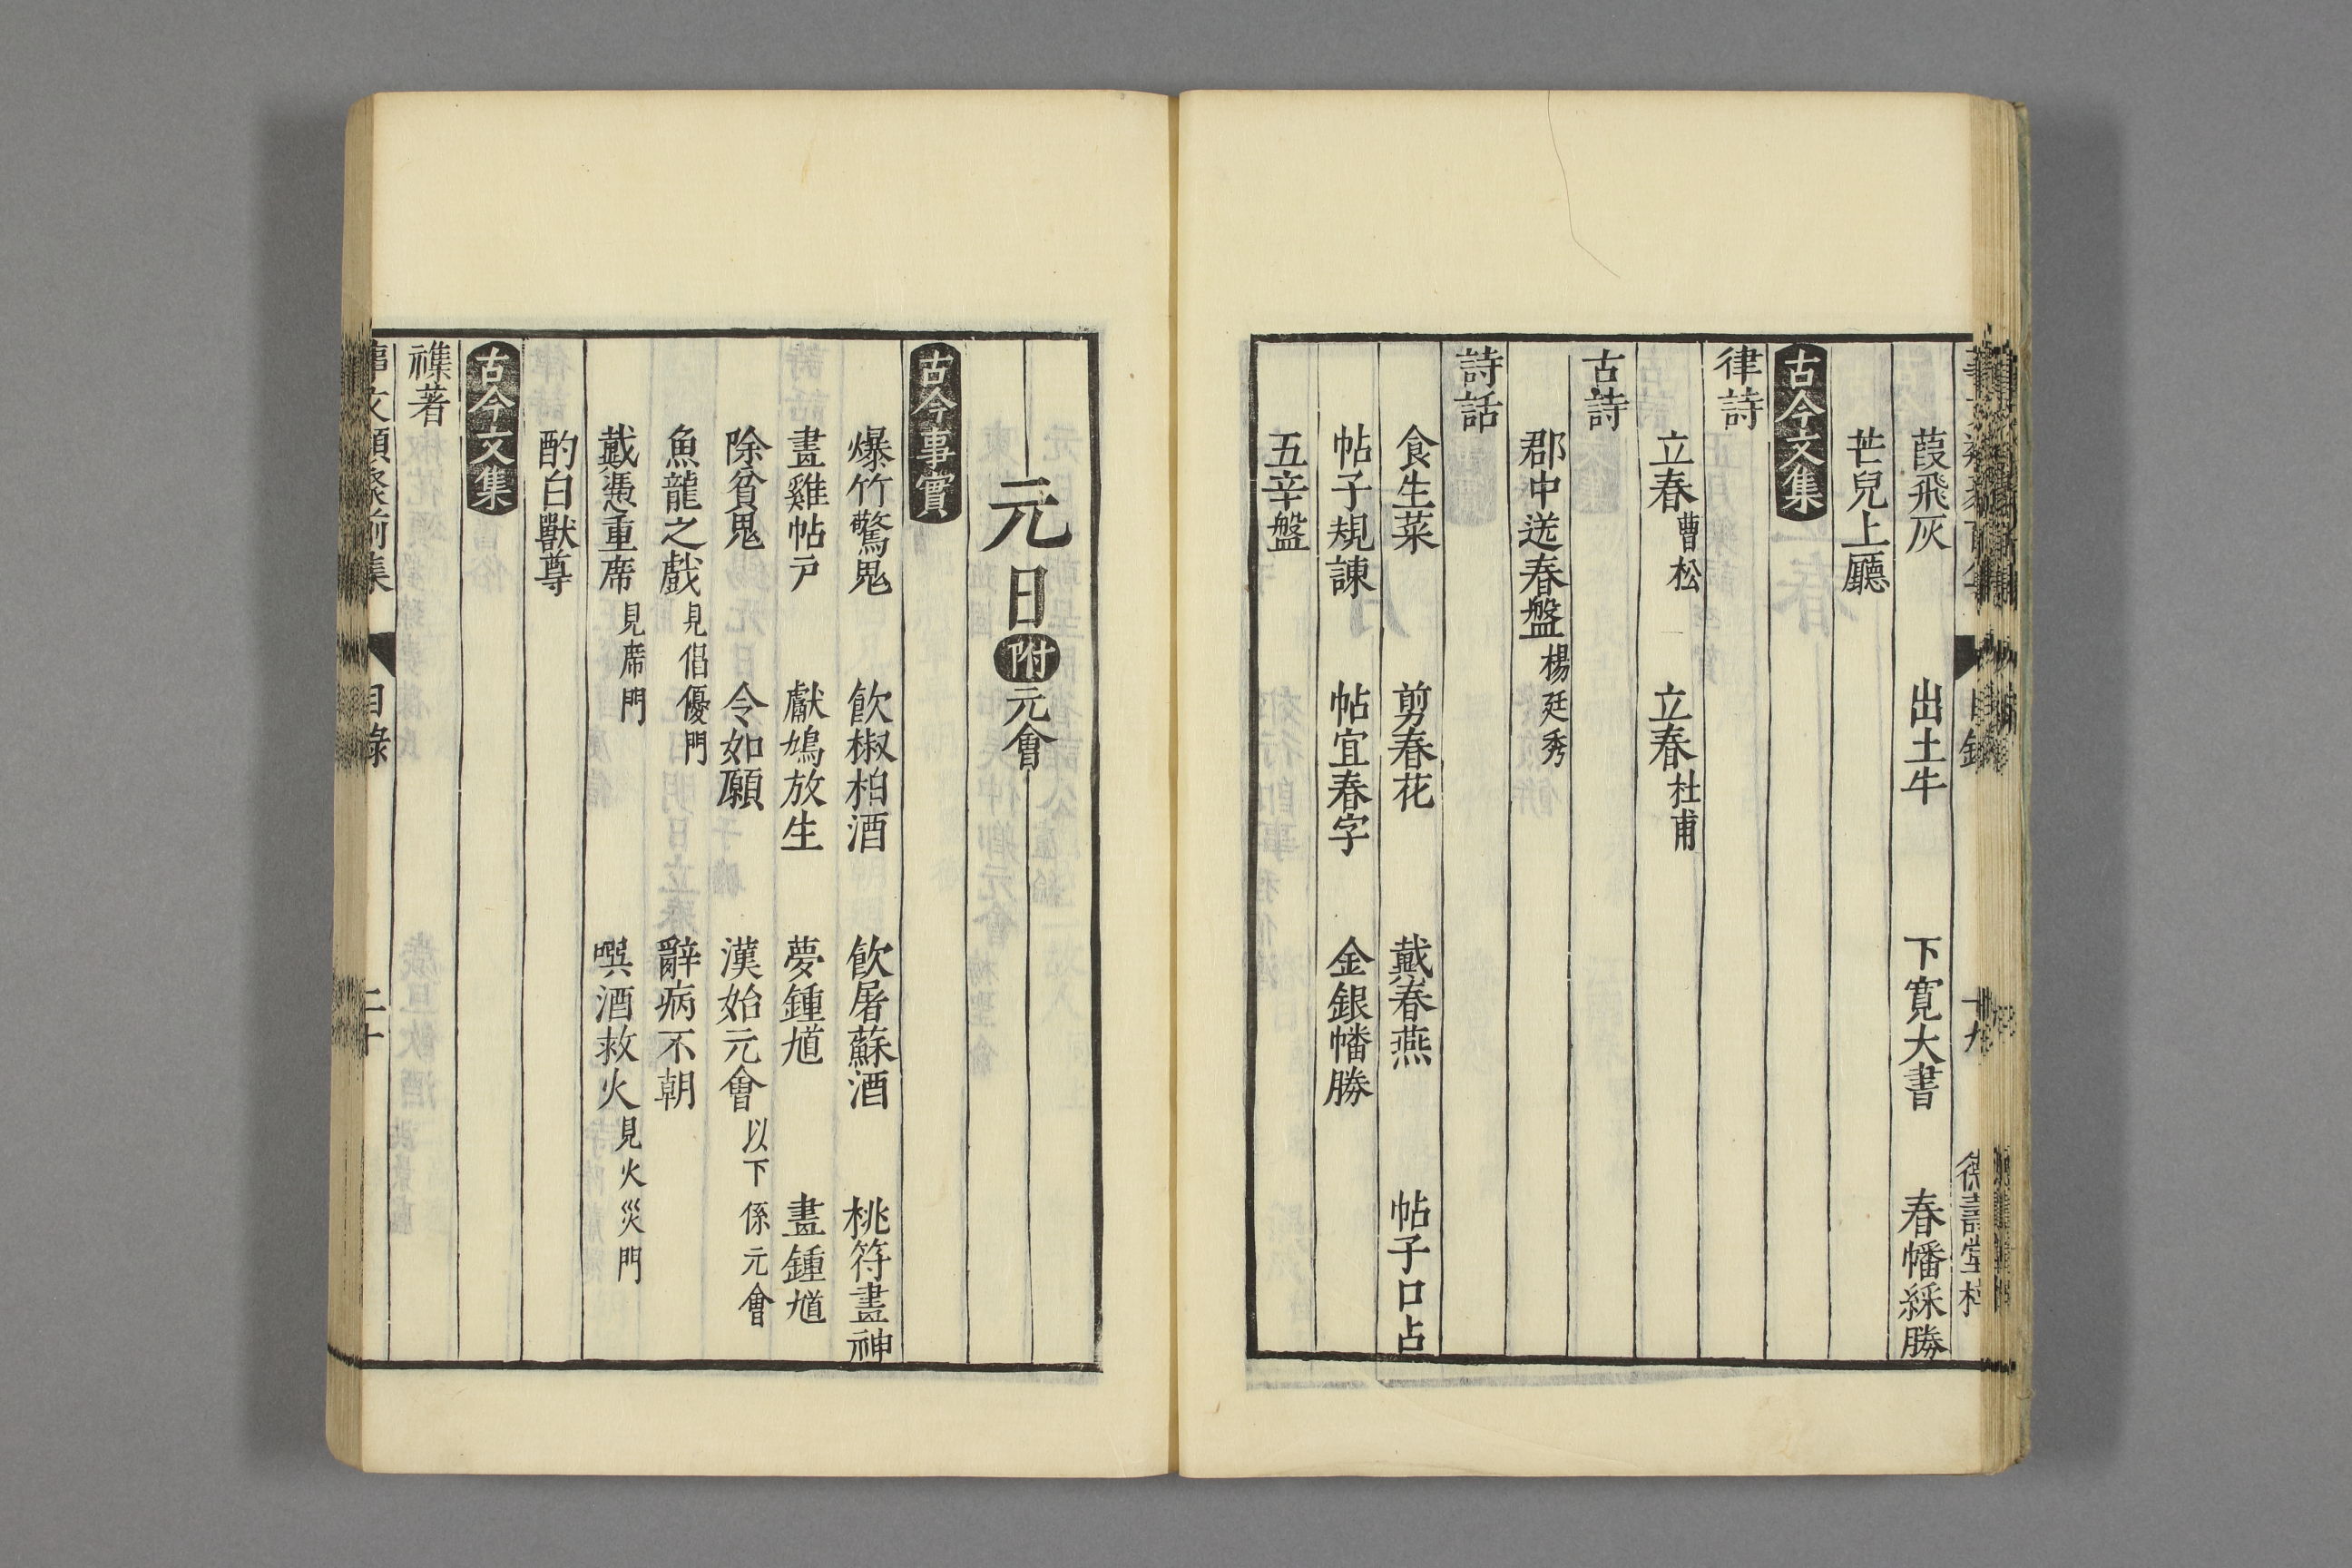 葭飛灰 出土牛 下寬大書 春幡綵勝
芒兒上廳
古今文集
律詩
立春 曹松 立春 杜甫
古詩
郡中送春盤 楊廷秀
詩話
食生菜 剪春花 戴春燕 帖子口占
帖子規諫 帖宜春字 金銀幡勝
五辛盤
元日 附 元會
古今事實
爆竹驚鬼 飲椒柏酒 飲屠蘇酒 桃符畫神
畫雞帖戶 獻鳩放生 夢鍾馗 畫鍾馗
除貧鬼 令如願 漢始元會 以下係元會
魚龍之戲 見倡優門 辭病不朝
戴憑重席 見席門 噀酒救火 見火災門
酌白獸尊
古今文集
襍著
事文類聚前集 目錄 二十